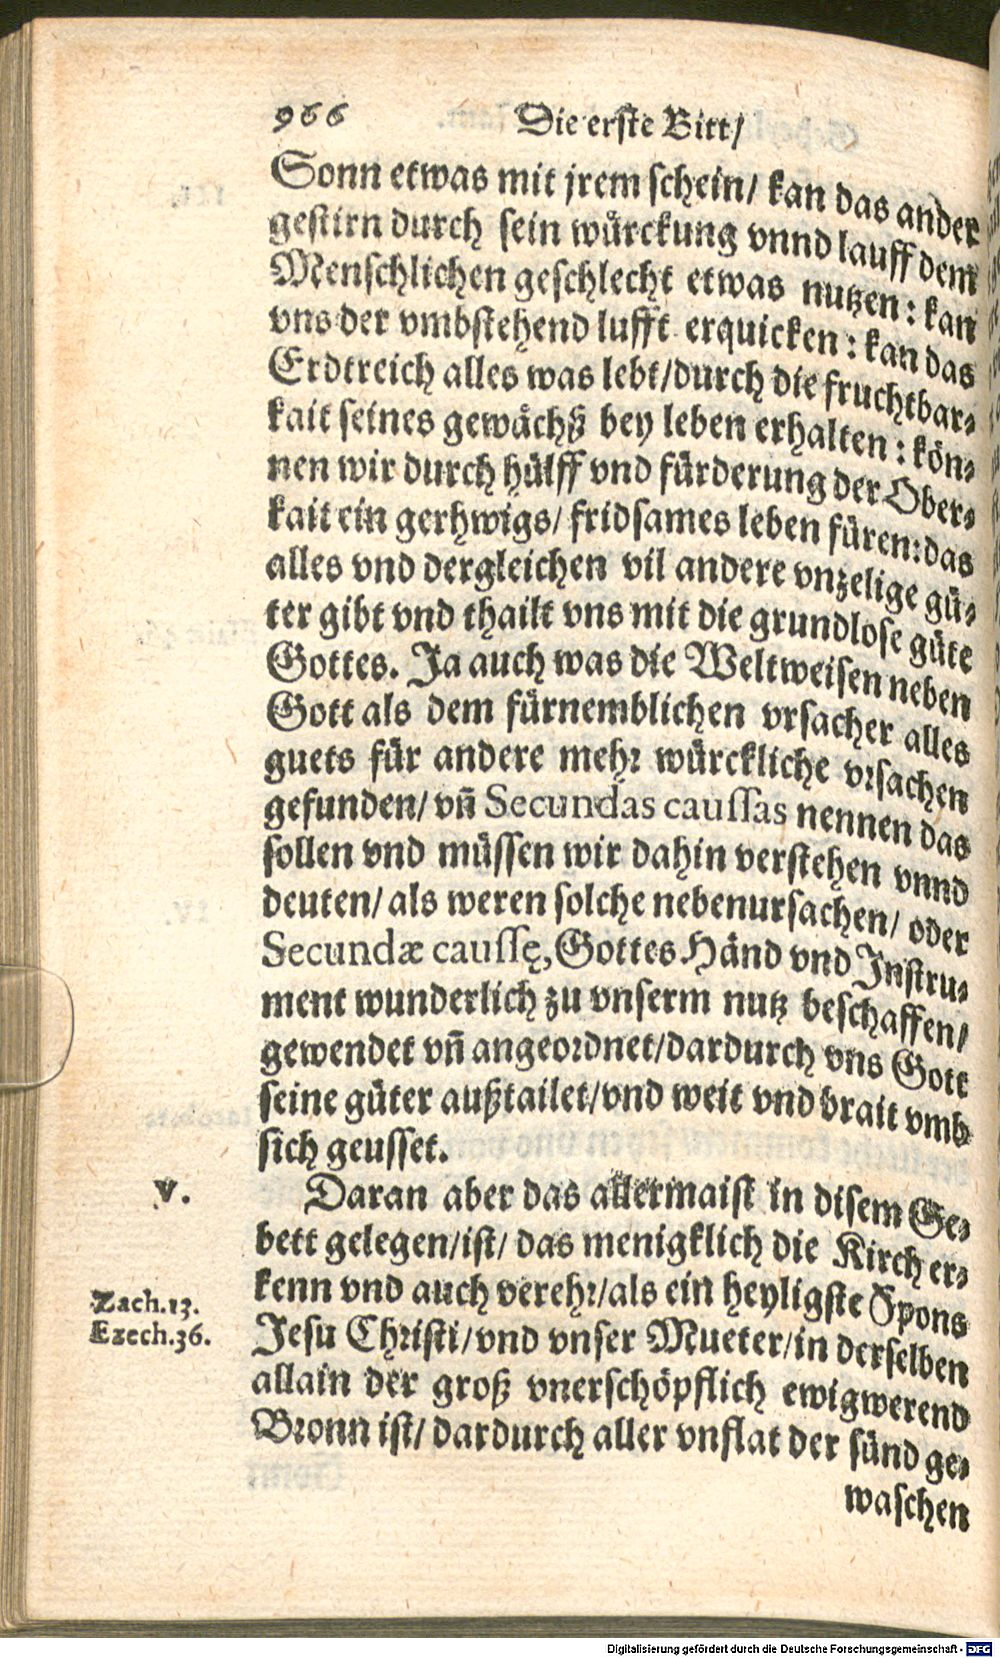 966 Die erste Bitt/
Sonn etwas mit jrem schein/ kan das ander
gestirn durch sein würckung vnnd lauff dem
Menschlichen geschlecht etwas nutzen: kan
vns der vmbstehend lufft erquicken: kan das
Erdtreich alles was lebt/durch die fruchtbar-
kait seines gewächß bey leben erhalten: kön-
nen wir durch hülff vnd fürderung der Ober-
kait ein gerhwigs/ fridsames leben füren: das
alles vnd dergleichen vil andere vnzelige gü-
ter gibt vnd thailt vns mit die grundlose güte
Gottes. Ja auch was die Weltweisen neben
Gott als dem fürnemblichen vrsacher alles
guets für andere mehr würckliche vrsachen
gefunden/ vñ Secundas caussas nennen das
sollen vnd müssen wir dahin verstehen vnnd
deuten/ als weren solche nebenursachen/ oder
Secundæ caussę, Gottes Händ vnd Instru-
ment wunderlich zu vnserm nutz beschaffen/
gewendet vñ angeordnet/dardurch vns Gott
seine güter außtailet/vnd weit vnd brait vmb
sich geusset.
V. Daran aber das allermaist in disem Ge-
bett gelegen/ist/ das menigklich die Kirch er-
kenn vnd auch verehr/als ein heyligste Spons
Zach.13.
Jesu Christi/vnd vnser Mueter/in derselben
Ezech.36.
allain der groß vnerschöpflich ewigwerend
Bronn ist/ dardurch aller vnflat der sünd ge-
waschen
Digitalisierung gefördert durch die Deutsche Forschungsgemeinschaft - DFG